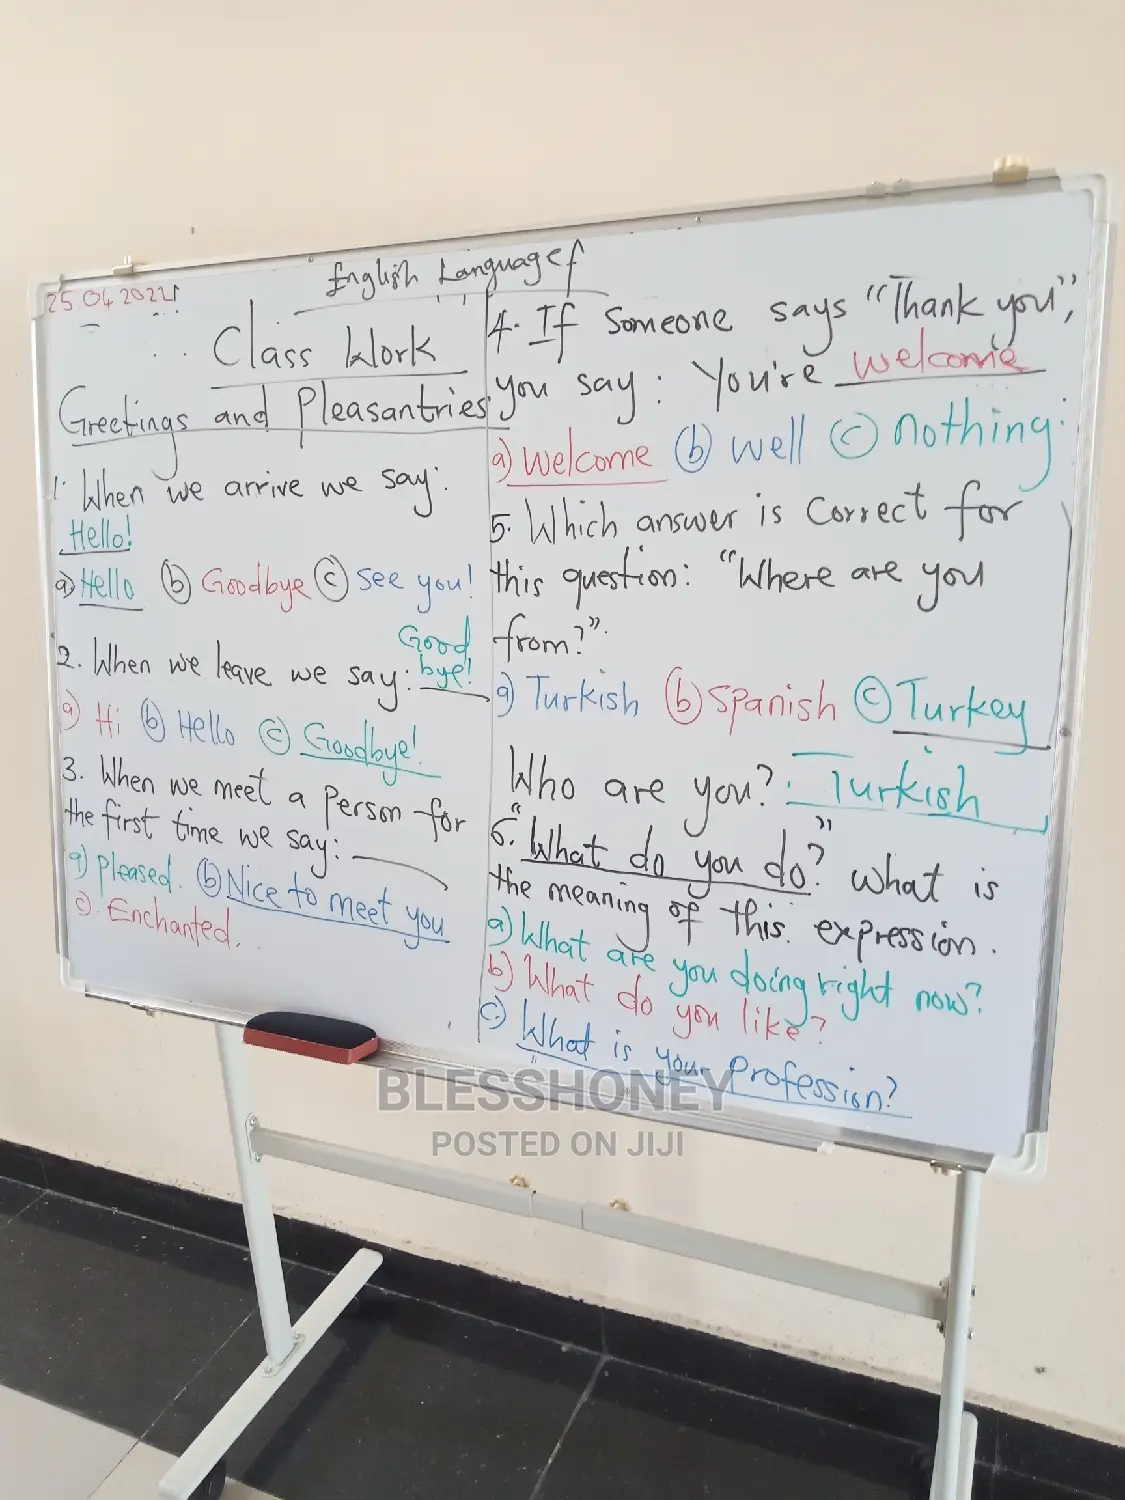 English Language
25.04.2022
Class Work
Greetings and Pleasantries
1. When we arrive we say:
Hello!
a) Hello (b) Goodbye (c) see you!
2. When we leave we say: Good
bye!
a) Hi (b) Hello (c) Goodbye!
3. When we meet a Person for
the first time we say:
a) Pleased. (b) Nice to meet you
c). Enchanted.
4. If Someone says "Thank you",
you say: You're welcome
a) welcome (b) well (c) nothing.
5. Which answer is Correct for
this question: "Where are you
from?".
a) Turkish (b) Spanish (c) Turkey
Who are you?: Turkish
6. "What do you do?" What is
the meaning of this expression.
a) What are you doing right now?
b) What do you like?
c) What is your Profession?
BLESSHONEY
POSTED ON JIJI